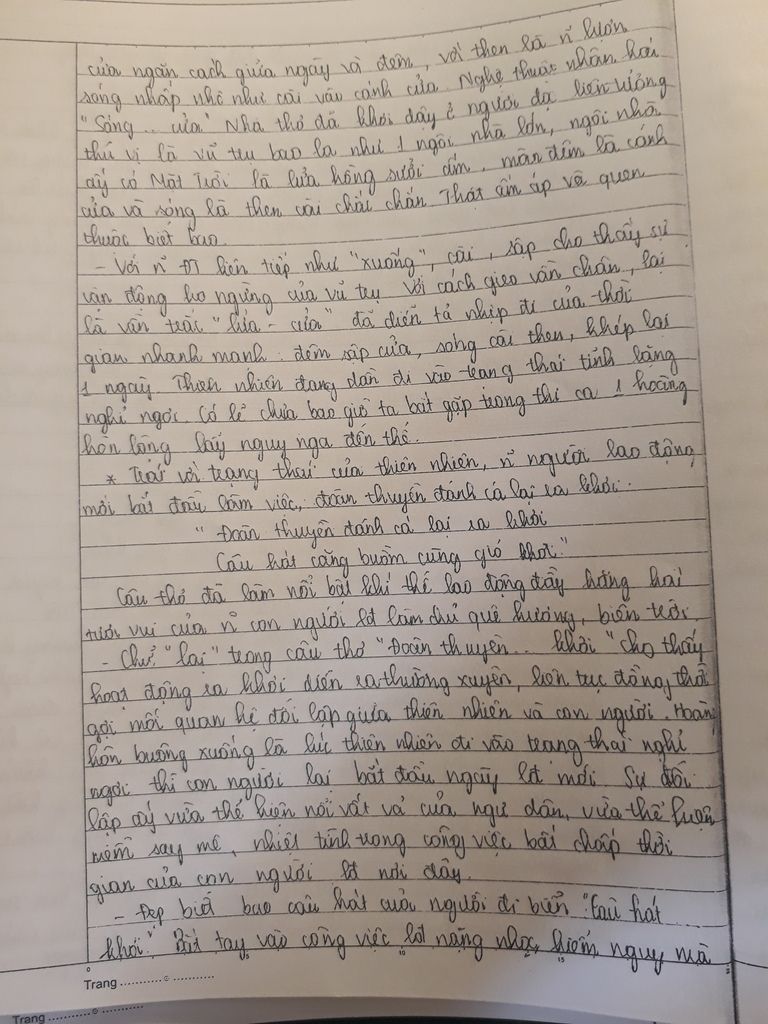 cửa ngăn cách giữa ngày và đêm, với then là n~ lượn
sóng nhấp nhô như cài vào cánh cửa. Nghệ thuật nhân hoá
"Sóng... cửa" Nhà thơ đã khơi dậy ở người đọc liên tưởng
thú vị là vũ trụ bao la như 1 ngôi nhà lớn, ngôi nhà
ấy có Mặt Trời là lửa hồng sưởi ấm, màn đêm là cánh
cửa và sóng là then cài chắc chắn. Thật ấm áp và quen
thuộc biết bao.
- Với n~ ĐT liên tiếp như "xuống", cài, sập cho thấy sự
vận động ko ngừng của vũ trụ. Với cách gieo vần chân, lại
là vần trắc "lửa - cửa" đã diễn tả nhịp đi của thời
gian nhanh mạnh: đêm sập cửa, sóng cài then, khép lại
1 ngày. Thiên nhiên đang dần đi vào trạng thái tĩnh lặng
nghỉ ngơi. Có lẽ chưa bao giờ ta bắt gặp trong thi ca 1 hoàng
hôn lộng lẫy nguy nga đến thế.
* Trái với trạng thái của thiên nhiên, n~ người lao động
mới bắt đầu làm việc, đoàn thuyền đánh cá lại ra khơi.
" Đoàn thuyền đánh cá lại ra khơi
Câu hát căng buồm cùng gió khơi."
Câu thơ đã làm nổi bật khí thế lao động đầy hăng hái
tươi vui của n~ con người lđ làm chủ quê hương, biển trời.
- Chữ "lại" trong câu thơ "Đoàn thuyền... khơi" cho thấy
hoạt động ra khơi diễn ra thường xuyên, liên tục đồng thời
gợi mối quan hệ đối lập giữa thiên nhiên và con người. Hoàng
hôn buông xuống là lúc thiên nhiên đi vào trạng thái nghỉ
ngơi thì con người lại bắt đầu ngày lđ mới. Sự đối
lập ấy vừa thể hiện nỗi vất vả của ngư dân, vừa thể hiện
niềm say mê, nhiệt tình trong công việc bất chấp thời
gian của con người lđ nơi đây.
- Đẹp biết bao câu hát của người đi biển "Câu hát
khơi." Bắt tay vào công việc lđ nặng nhọc, hiểm nguy mà
Trang
Trang